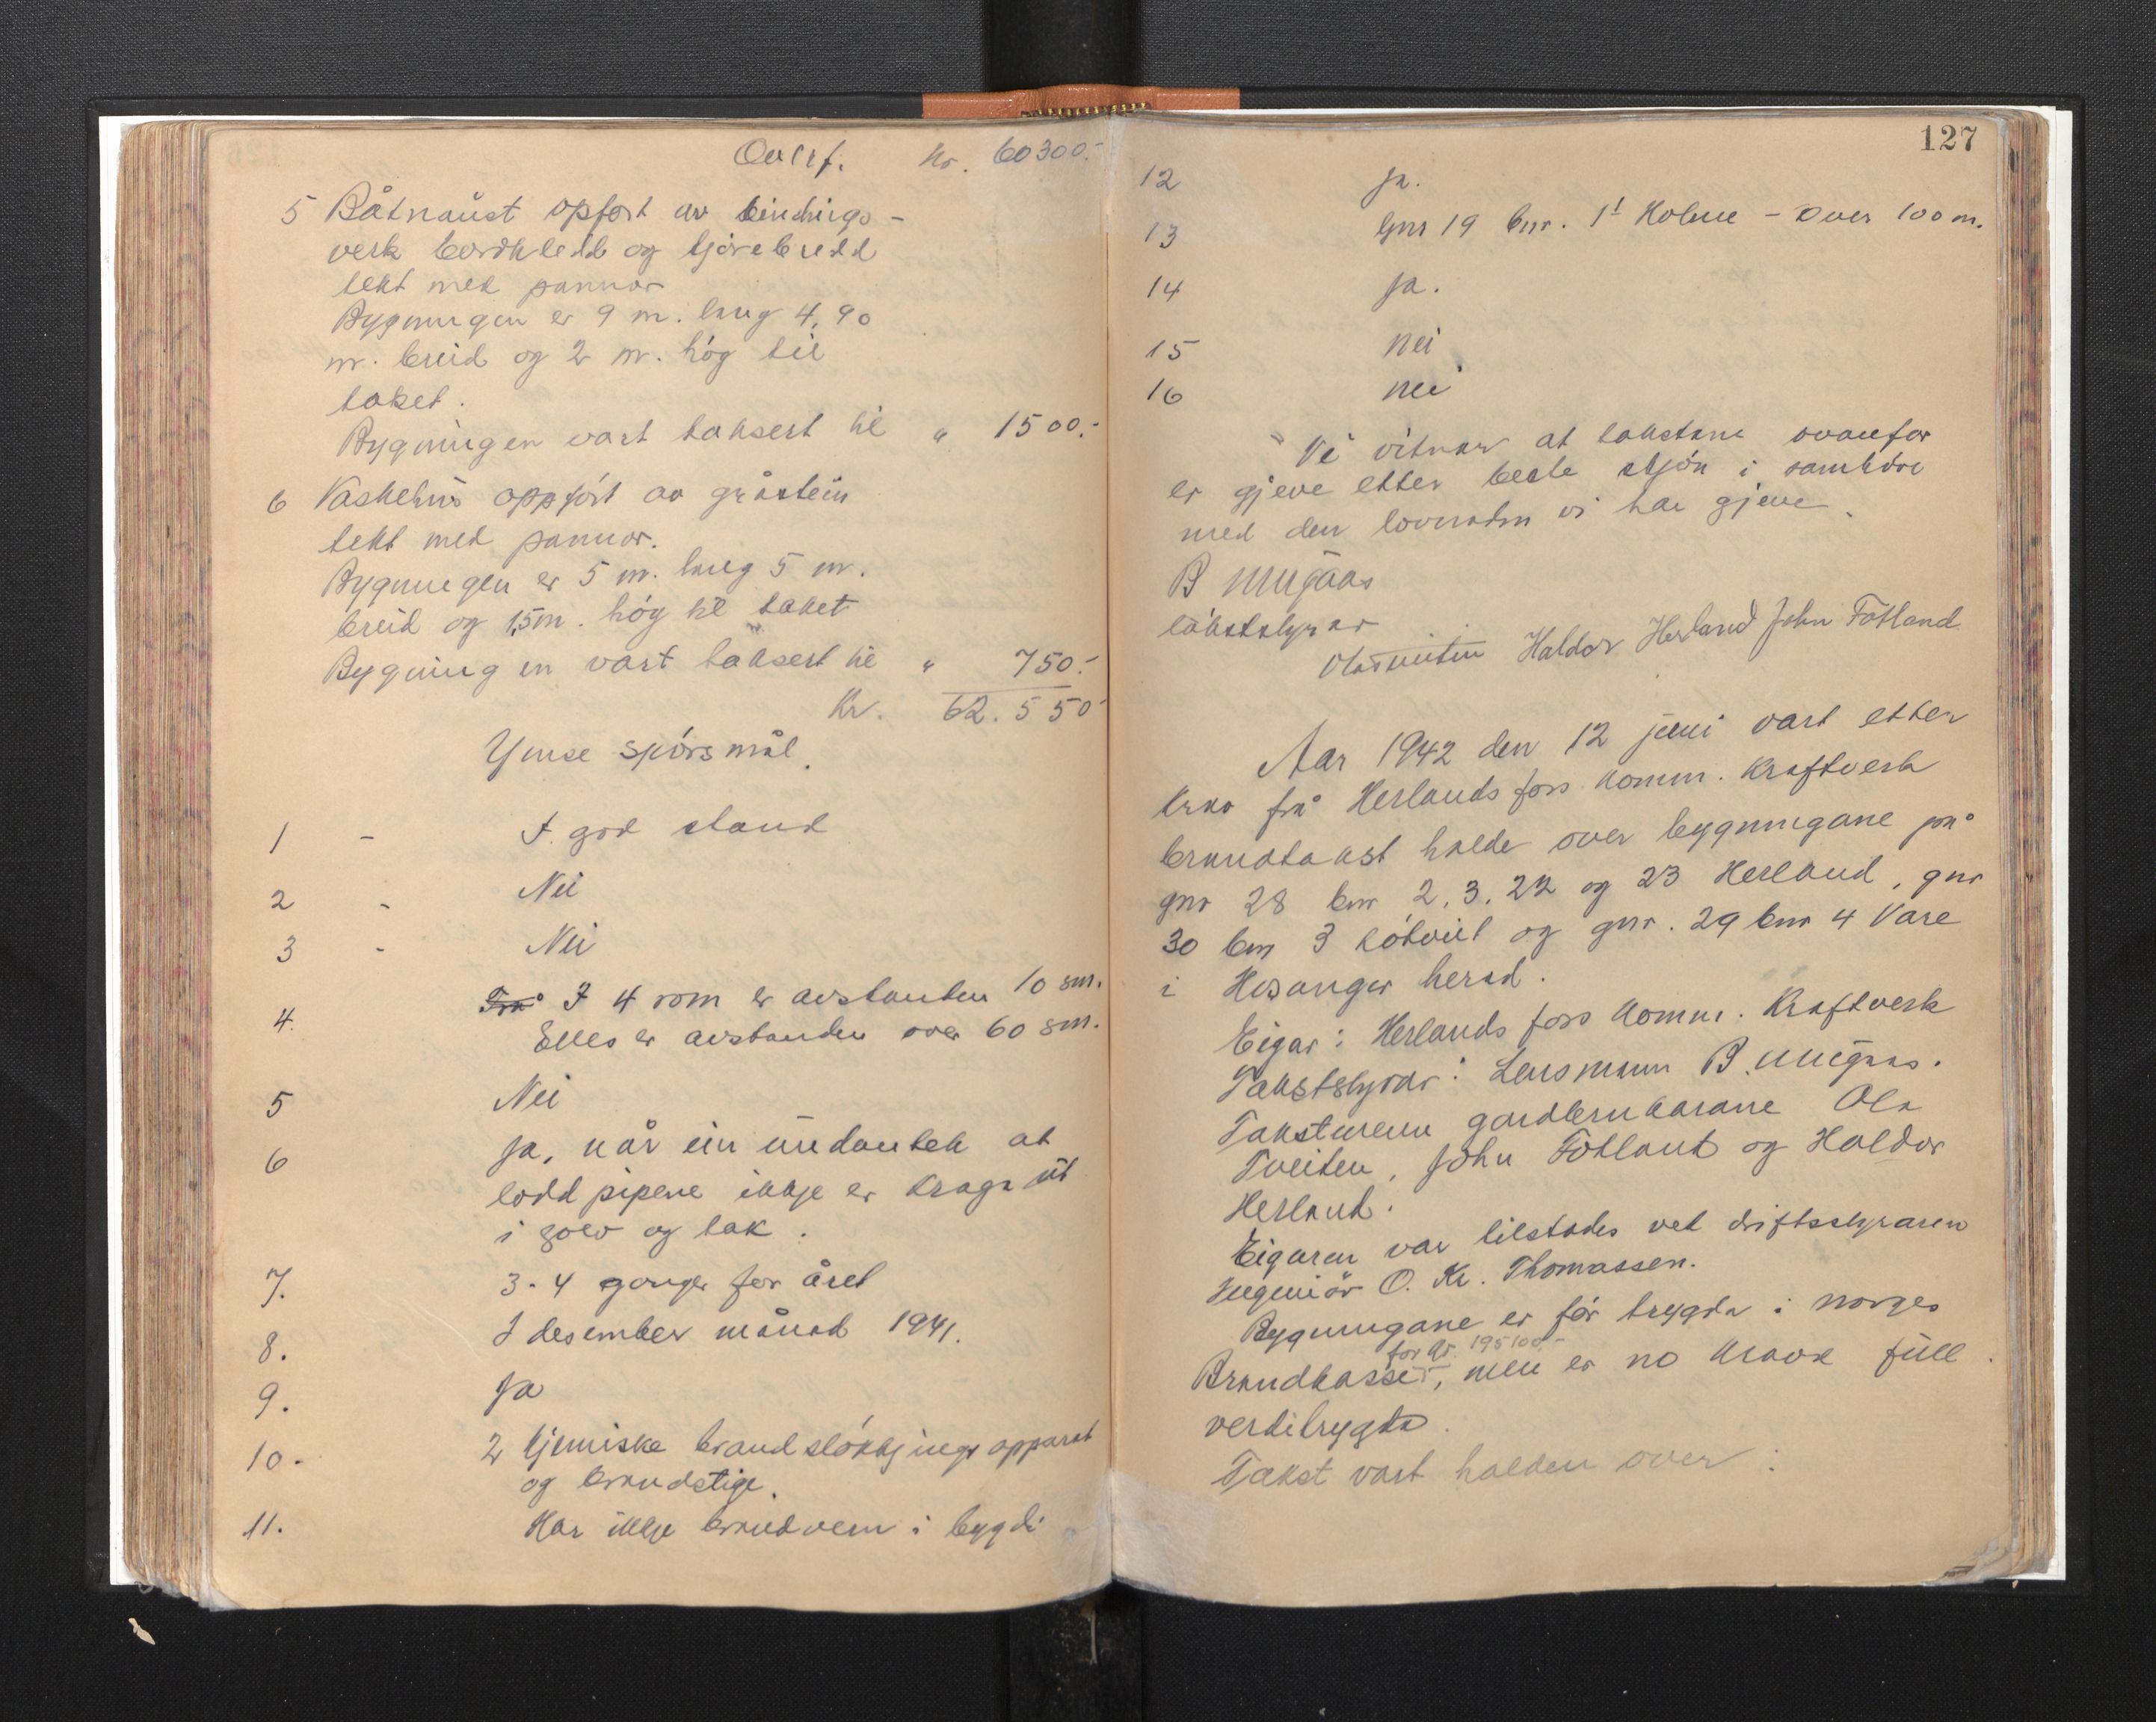 Overf. kr. 60300.-
5 Båtnaust opført av bindings-
verk bordkledd og tjørebredd
tekt med pannor
Bygningen er 9 m. lang 4,90
m. breid og 2 m. høg til
taket.
Bygningen vart taksert til " 1500.-
6 Vaskehus oppført av gråstein
tekt med pannor.
Bygningen er 5 m. lang 5 m.
breid og 1,5m. høg til taket
Bygningen vart taksert til " 750.-
Kr. 62.550-
Ymse spørsmål.
1 - I god stand
2 - Nei
3 - Nei
4. Frå I 4 rom er avstanden 10 sm.
Elles er avstanden over 60 sm.
5 Nei
6 Ja, når ein undantek at
loddpipene ikkje er kraga ut
i golv og tak.
7. 3-4 gonger for året
8. I desember månad 1941.
9. Ja
10. 2 kjemiske brandsløkkjings apparat
og brandstige.
11. Har ikkje brandvern i bygdi
127
12 Ja.
13 Gnr 19 bnr. 1 Holme - over 100 m.
14 Ja.
15 Nei
16 Nei
Vi vitnar at takstane ovanfor
er gjeve etter beste skjøn i samhøve
med den lovnaden vi har gjeve.
B Mugaas
takststyrar
Ola Tveiten Haldor Herland John Fotland
Aar 1942 den 12 juni vart etter
krav frå Herlandsfoss komm. Kraftverk
brandtakst halde over bygningane på
gnr 28 bnr 2, 3, 22 og 23 Herland, gnr
30 bnr 3 Røtveit og gnr. 29 bnr 4 Vare
i Hosanger herad.
Eigar: Herlandsfoss komm. Kraftverk
Takststyrar: Lensmann B. Mugaas.
Takstmenn gardbrukarane Ola
Tveiten, John Fotland og Haldor
Herland.
Eigaren var tilstades ved driftsstyraren
Ingeniør O. Kr. Thomassen.
Bygningane er før trygda i Norges
for kr. 195100.-
Brandkasse, men er no kravd full
verditrygda.
Takst vart halden over: